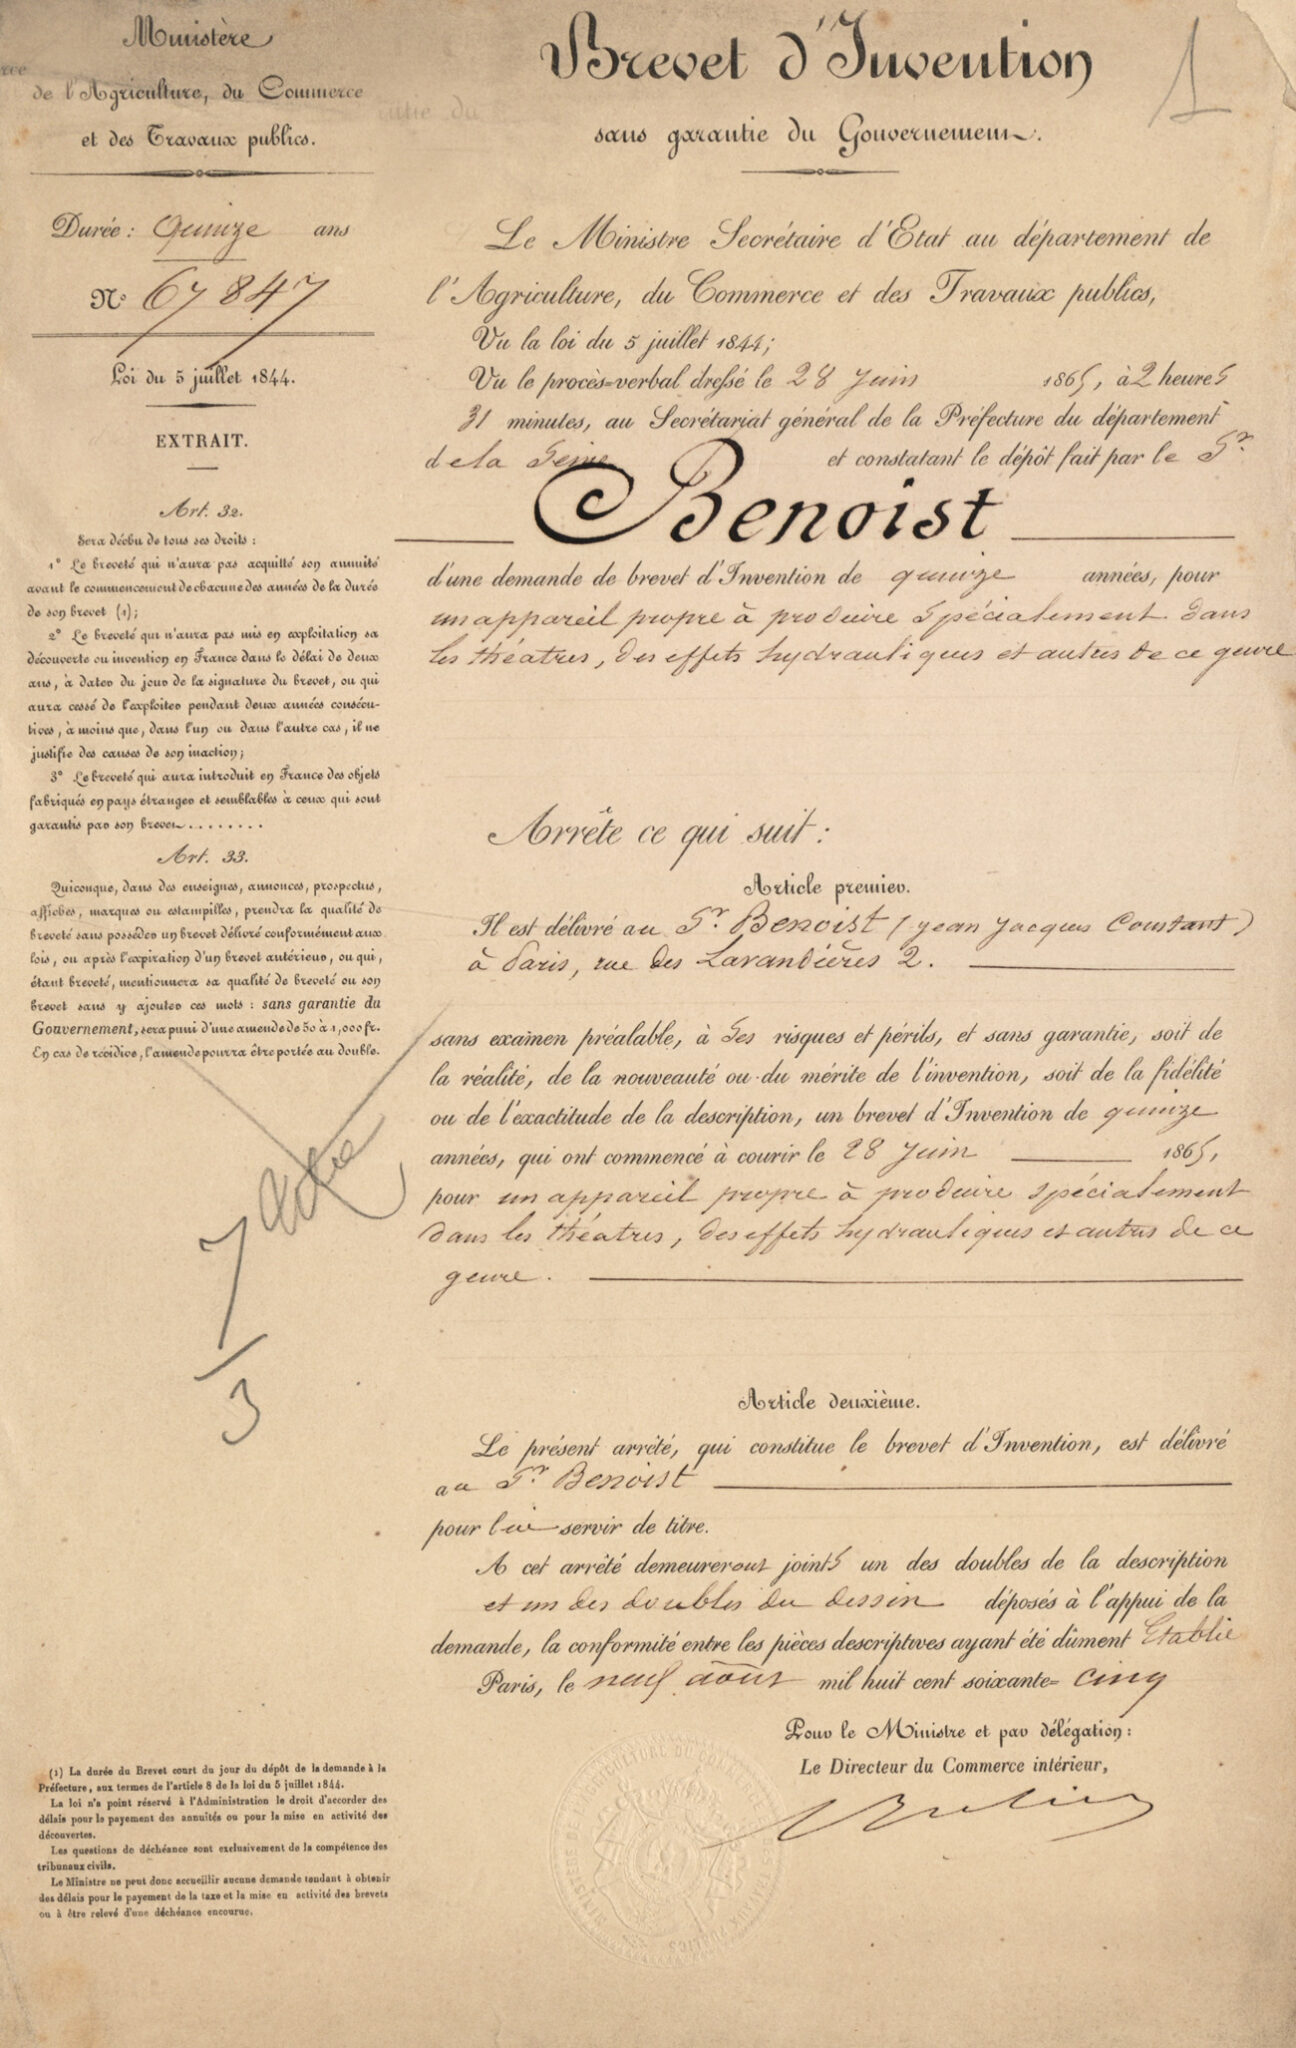 Ministère
de l'Agriculture, du Commerce
et des Travaux publics.
Durée : quinze ans
N° 67847
Loi du 5 juillet 1844.
EXTRAIT.
Art. 32.
Sera déchu de tous ses droits :
1° Le breveté qui n'aura pas acquitté son annuité
avant le commencement de chacune des années de la durée
de son brevet (1) ;
2° Le breveté qui n'aura pas mis en exploitation sa
découverte ou invention en France dans le délai de deux
ans, à dater du jour de la signature du brevet, ou qui
aura cessé de l'exploiter pendant deux années consécu-
tives, à moins que, dans l'un ou dans l'autre cas, il ne
justifie des causes de son inaction ;
3° Le breveté qui aura introduit en France des objets
fabriqués en pays étranger et semblables à ceux qui sont
garantis par son brevet........
Art. 33.
Quiconque, dans des enseignes, annonces, prospectus,
affiches, marques ou estampilles, prendra la qualité de
breveté sans posséder un brevet délivré conformément aux
lois, ou après l'expiration d'un brevet antérieur, ou qui,
étant breveté, mentionnera sa qualité de breveté ou son
brevet sans y ajouter ces mots : sans garantie du
Gouvernement, sera puni d'une amende de 50 à 1,000 fr.
En cas de récidive, l'amende pourra être portée au double.
7
3
(1) La durée du Brevet court du jour du dépôt de la demande à la
Préfecture, aux termes de l'article 8 de la loi du 5 juillet 1844.
La loi n'a point réservé à l'Administration le droit d'accorder des
délais pour le payement des annuités ou pour la mise en activité des
découvertes.
Les questions de déchéance sont exclusivement de la compétence des
tribunaux civils.
Le Ministre ne peut donc accueillir aucune demande tendant à obtenir
des délais pour le payement de la taxe et la mise en activité des brevets
ou à être relevé d'une déchéance encourue.
1
Brevet d'Invention
sans garantie du Gouvernement.
Le Ministre Secrétaire d'Etat au département de
l'Agriculture, du Commerce et des Travaux publics,
Vu la loi du 5 juillet 1844 ;
Vu le procès-verbal dressé le 28 Juin 1865, à 2 heures
31 minutes, au Secrétariat général de la Préfecture du département
de la Seine et constatant le dépôt fait par le Sr
Benoist
d'une demande de brevet d'Invention de quinze années, pour
un appareil propre à produire spécialement dans
les théatres, des effets hydrauliques et autres de ce genre
Arrête ce qui suit :
Article premier.
Il est délivré au Sr Benoist (Jean Jacques Constant)
à Paris, rue des Lavandières 2.
sans examen préalable, à ses risques et périls, et sans garantie, soit de
la réalité, de la nouveauté ou du mérite de l'invention, soit de la fidélité
ou de l'exactitude de la description, un brevet d'Invention de quinze
années, qui ont commencé à courir le 28 Juin 1865,
pour un appareil propre à produire spécialement
dans les théatres, des effets hydrauliques et autres de ce
genre.
Article deuxième.
Le présent arrêté, qui constitue le brevet d'Invention, est délivré
au Sr Benoist
pour lui servir de titre.
A cet arrêté demeureront joints un des doubles de la description
et un des doubles du dessin déposés à l'appui de la
demande, la conformité entre les pièces descriptives ayant été dûment Etablie
Paris, le neuf août mil huit cent soixante-cinq
Pour le Ministre et par délégation :
Le Directeur du Commerce intérieur,